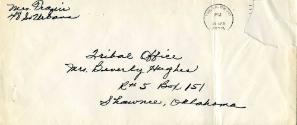 Mrs. Frazier
48 So Urbana
PM
Tribal Office
Mrs. Beverly Hughes
Rt 5 Box 151
Shawnee, Oklahoma